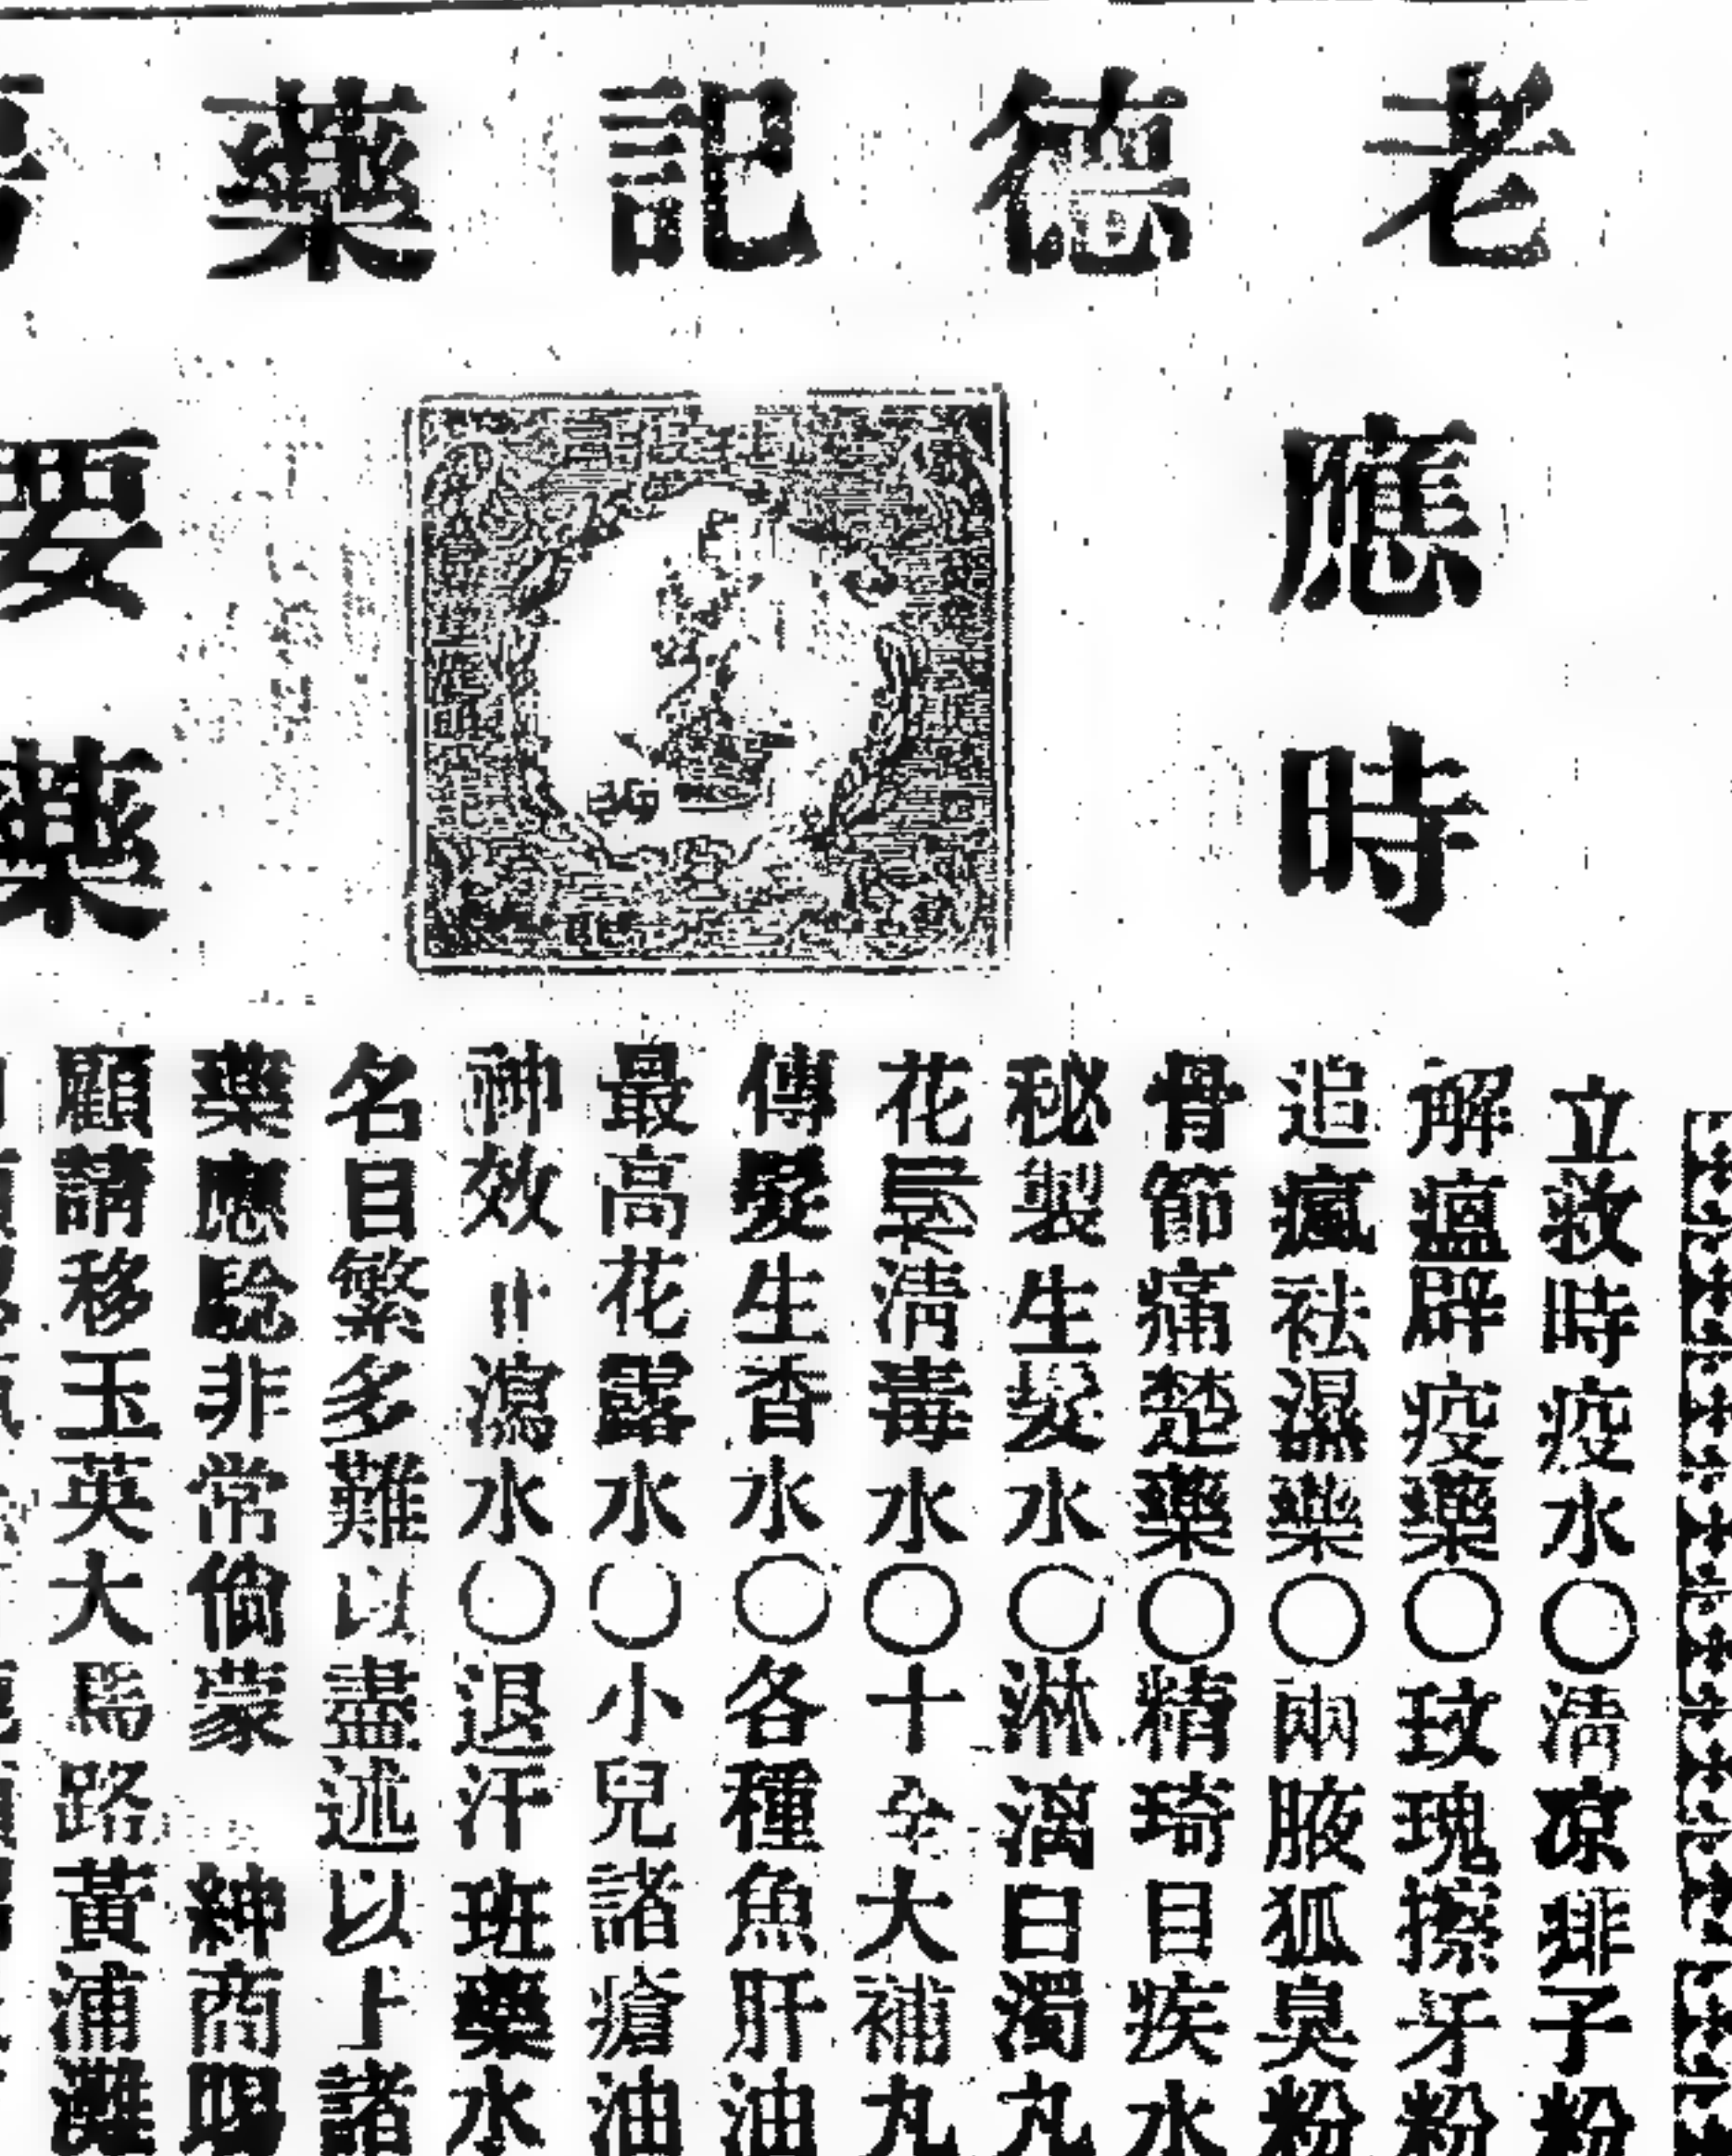 老德記藥
應時
要藥
立救時疫水○清凉痱子粉
解瘟辟疫藥○玫瑰擦牙粉
追瘋祛濕藥○兩腋狐臭粉
骨節痛楚藥○精琦目疾水
秘製生髮水○淋漓白濁丸
花清毒水○十全大補丸
傳髮生香水○各種魚肝油
最高花露水○小兒諸瘡油
神效瀉水○退汗班藥水
名目繁多難以盡述以上諸
藥應驗非常倘蒙 紳商賜
顧請移玉英大馬路黃浦灘